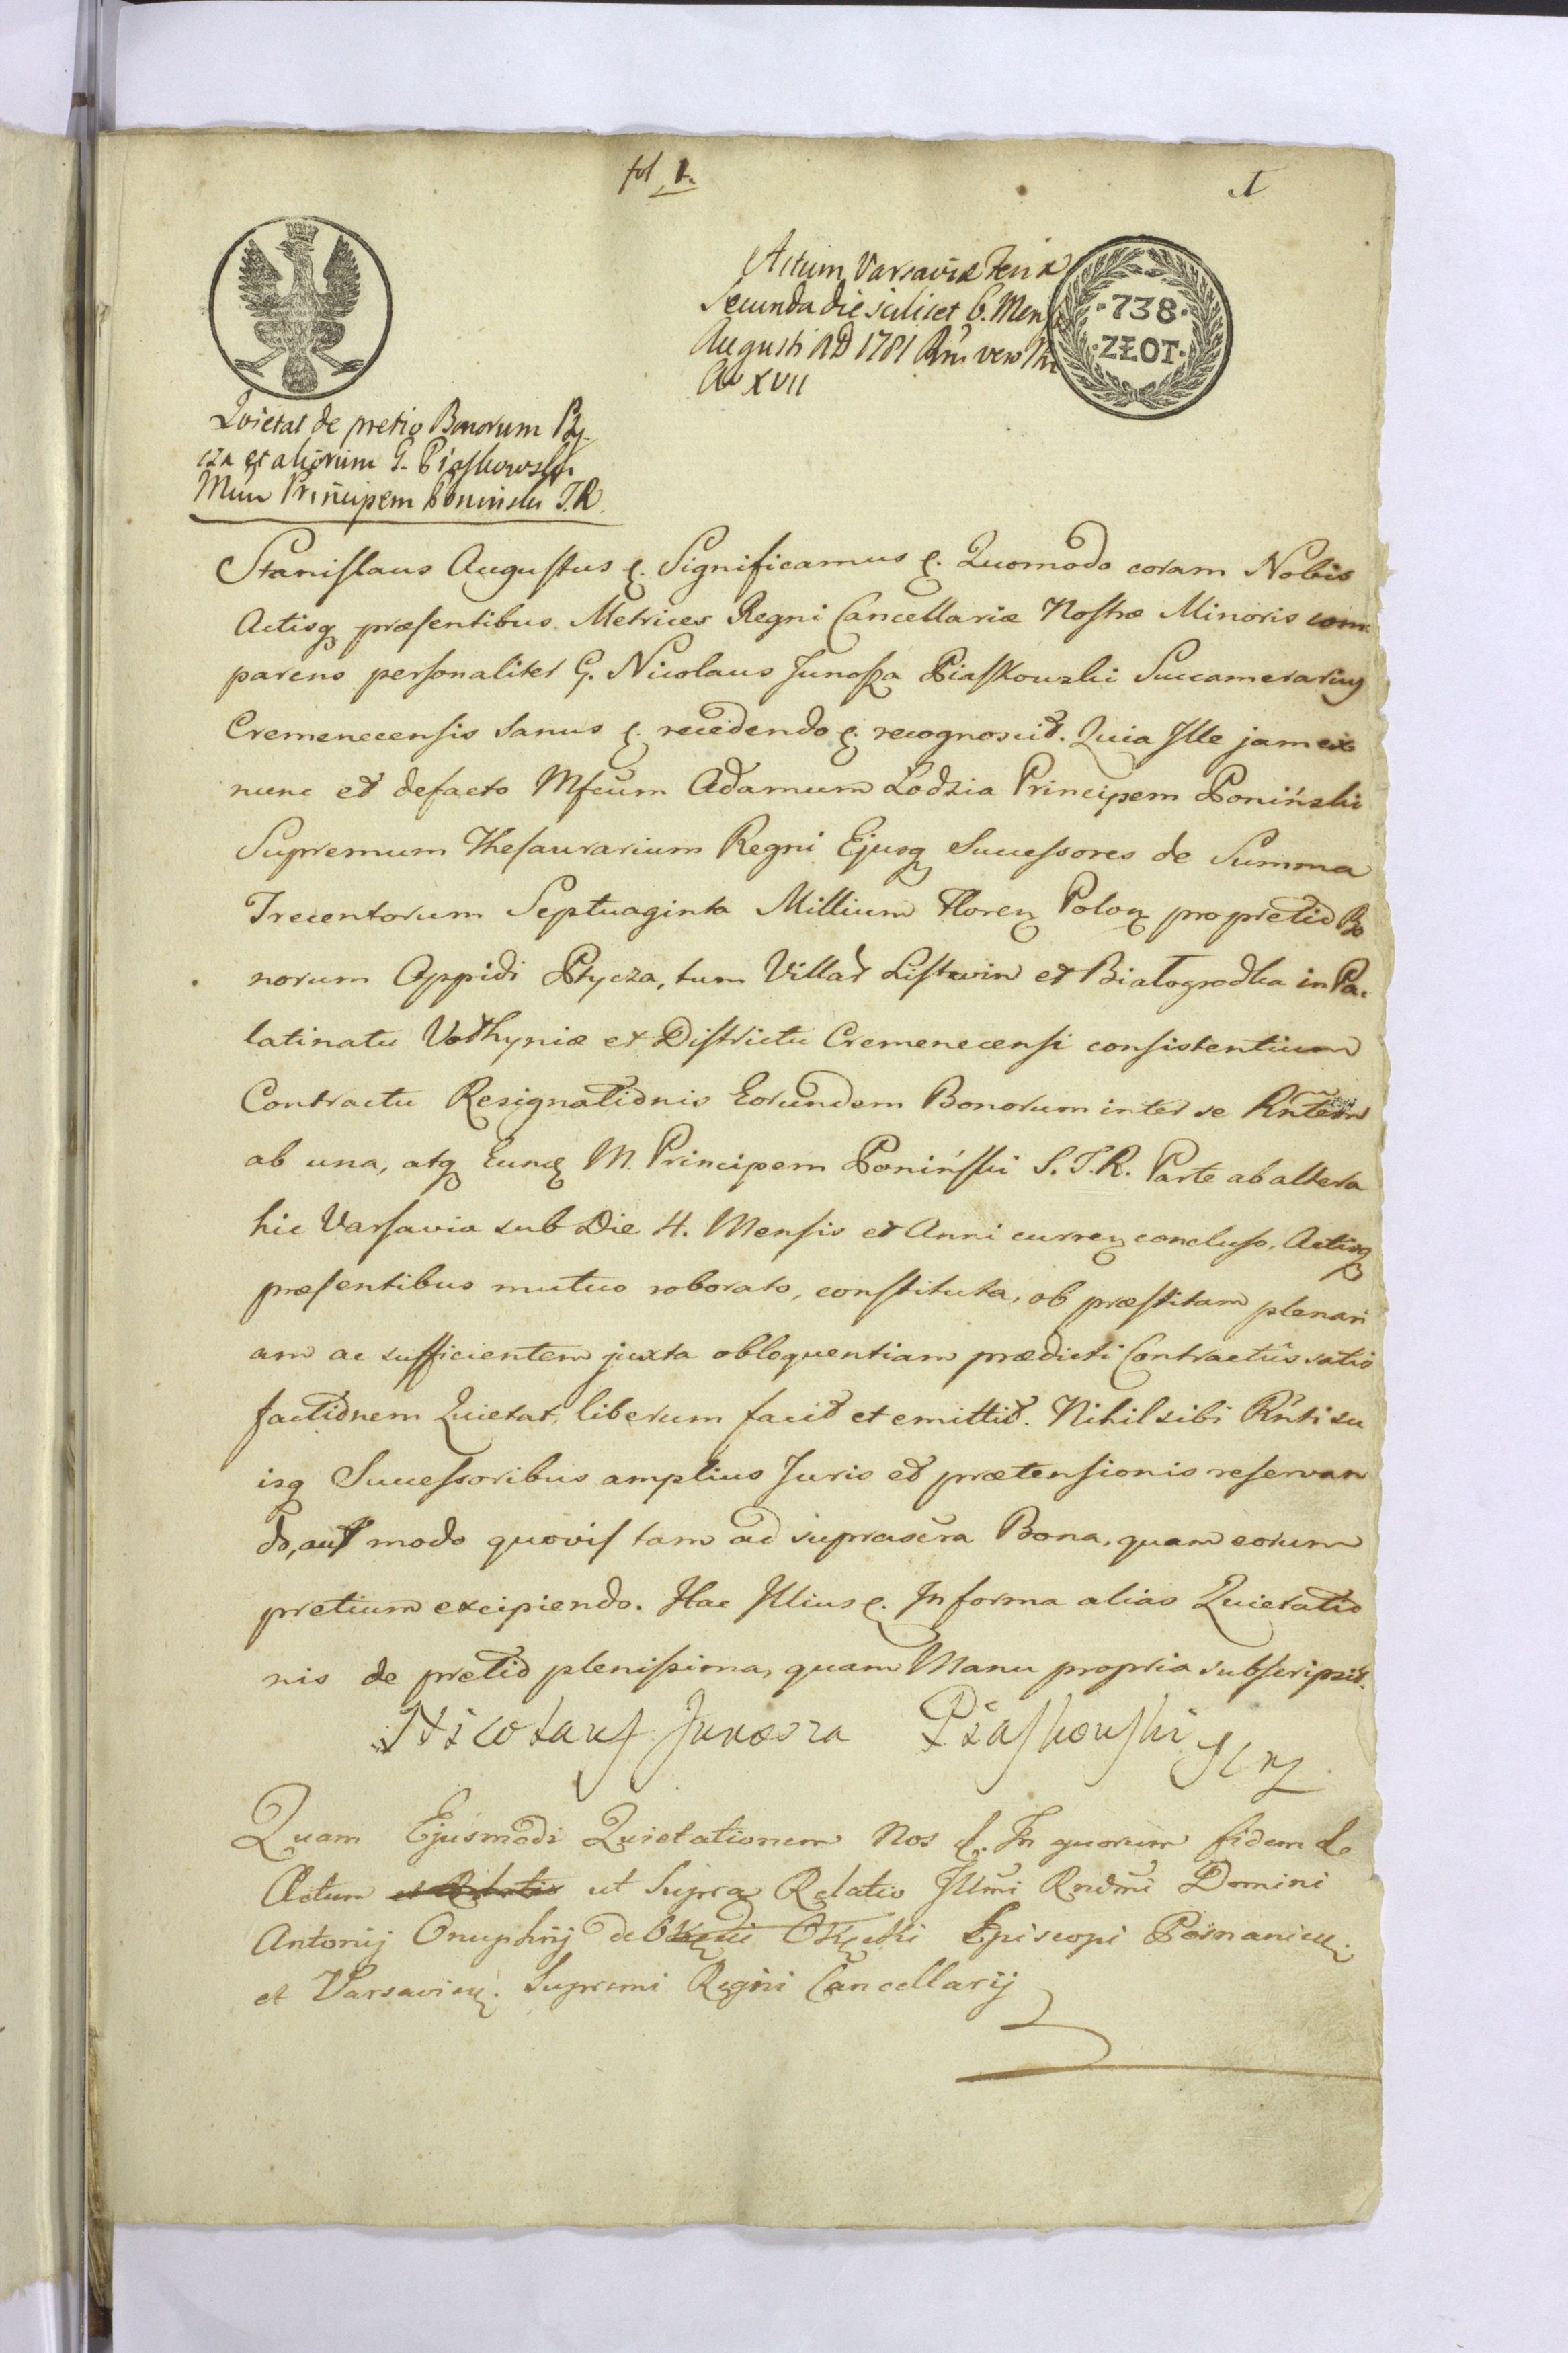 fol 1.
1
Actum Varsaviæ Feria
Secunda die scilicet 6. Mens
Augusti AD 1781 Rni vero Nri
Ao XVII
738
ZŁOT
Qvietat de pretio Bonorum Pty
cza et aliorum G. Piaskowski
Mum Principem Poninski T.R.
Stanislaus Augustus &. Significamus &. Quomodo coram Nobis
Actisq præsentibus Metrices Regni Cancellariæ Nostræ Minoris com
parens personaliter G. Nicolaus Junosza Piaskowski Succamerarius
Cremenecensis sanus &. recedendo &. recognovit. Quia Ille jam ex
nunc et defacto Mfcum Adamum Lodzia Principem Poniński
Supremum Thesaurarium Regni Ejusq Successores de Summa
Trecentorum Septuaginta Millium Floren Polon pro pretio Bo
norum Oppidi Ptycza, tum Villar Listwin et Białogrodka in Pa.
latinatu Volhyniæ et Districtu Cremenecensi consistentium
Contractu Resignationis Eorundem Bonorum inter se Rntem
ab una, atq Eund M. Principem Poniński S.T.R. Parte ab altera
hic Varsavia sub Die 4. Mensis et Anni curren concluso, Actisq
præsentibus mutuo roborato, constituta, ob præstitam plenari
am ac sufficientem juxta obloquentiam prædicti Contractûs satis
factionem Quietat, liberum facit et emittit. Nihil sibi Rnti su
isq Successoribus amplius Juris et prætensionis reservan
do, aut modo quovis tam ad suprascra Bona, quam eorum
pretium excipiendo. Hac Illius &. In forma alias Quietatio
nis de pretio plenissima, quam Manu propria subscripsit.
Nicolaus Junosza Piaskowski
Quam Ejusmodi Quietationem Nos &. In quorum fidem &
Actum et Relatio ut Supra Relatio Illmi Rndmi Domini
Antonij Onuphrij de Okęcie Okęcki Episcopi Posnanien.
et Varsavien. Supremi Regni Cancellarij